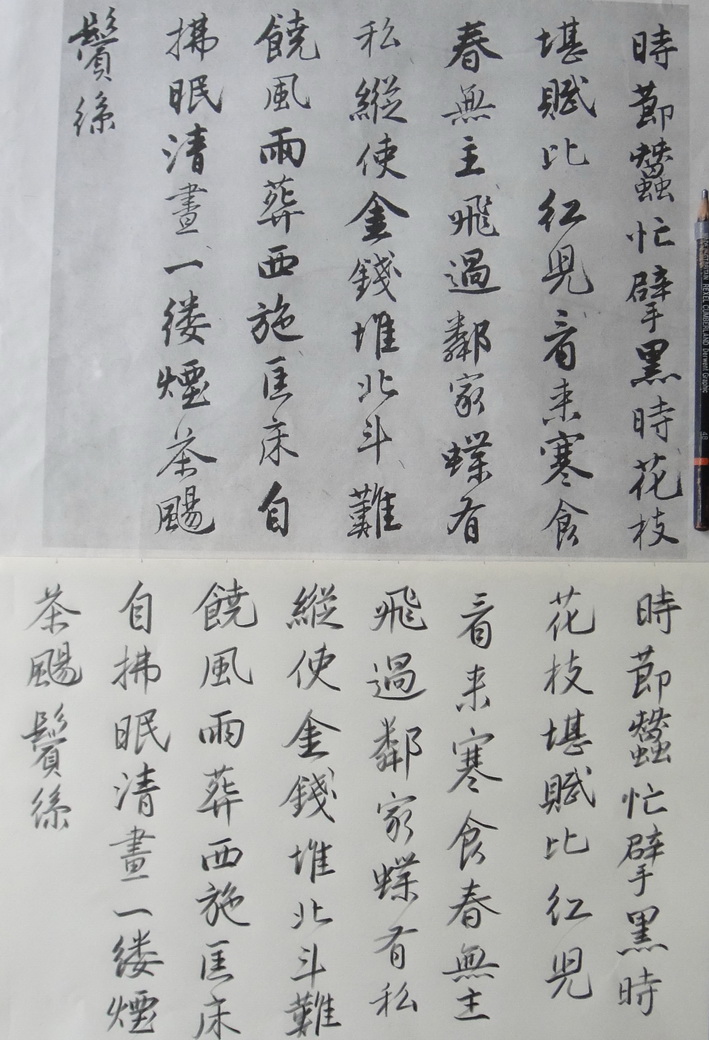 時節蠶忙擘黑時花枝
堪賦比紅児看来寒食
春無主飛過鄰家蝶有
私縱使金錢堆北斗難
饒風雨葬西施匡床自
拂眠清晝一縷煙茶颺
鬢絲
時節蠶忙擘黑時
花枝堪賦比紅児
看来寒食春無主
飛過鄰家蝶有私
縱使金錢堆北斗難
饒風雨葬西施匡床
自拂眠清晝一縷煙
茶颺鬢絲
REXEL CUMBERLAND Derwent Graphic